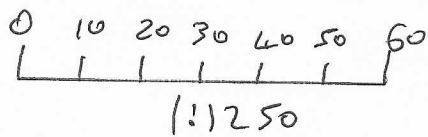 0 10 20 30 40 50 60
(!) 250